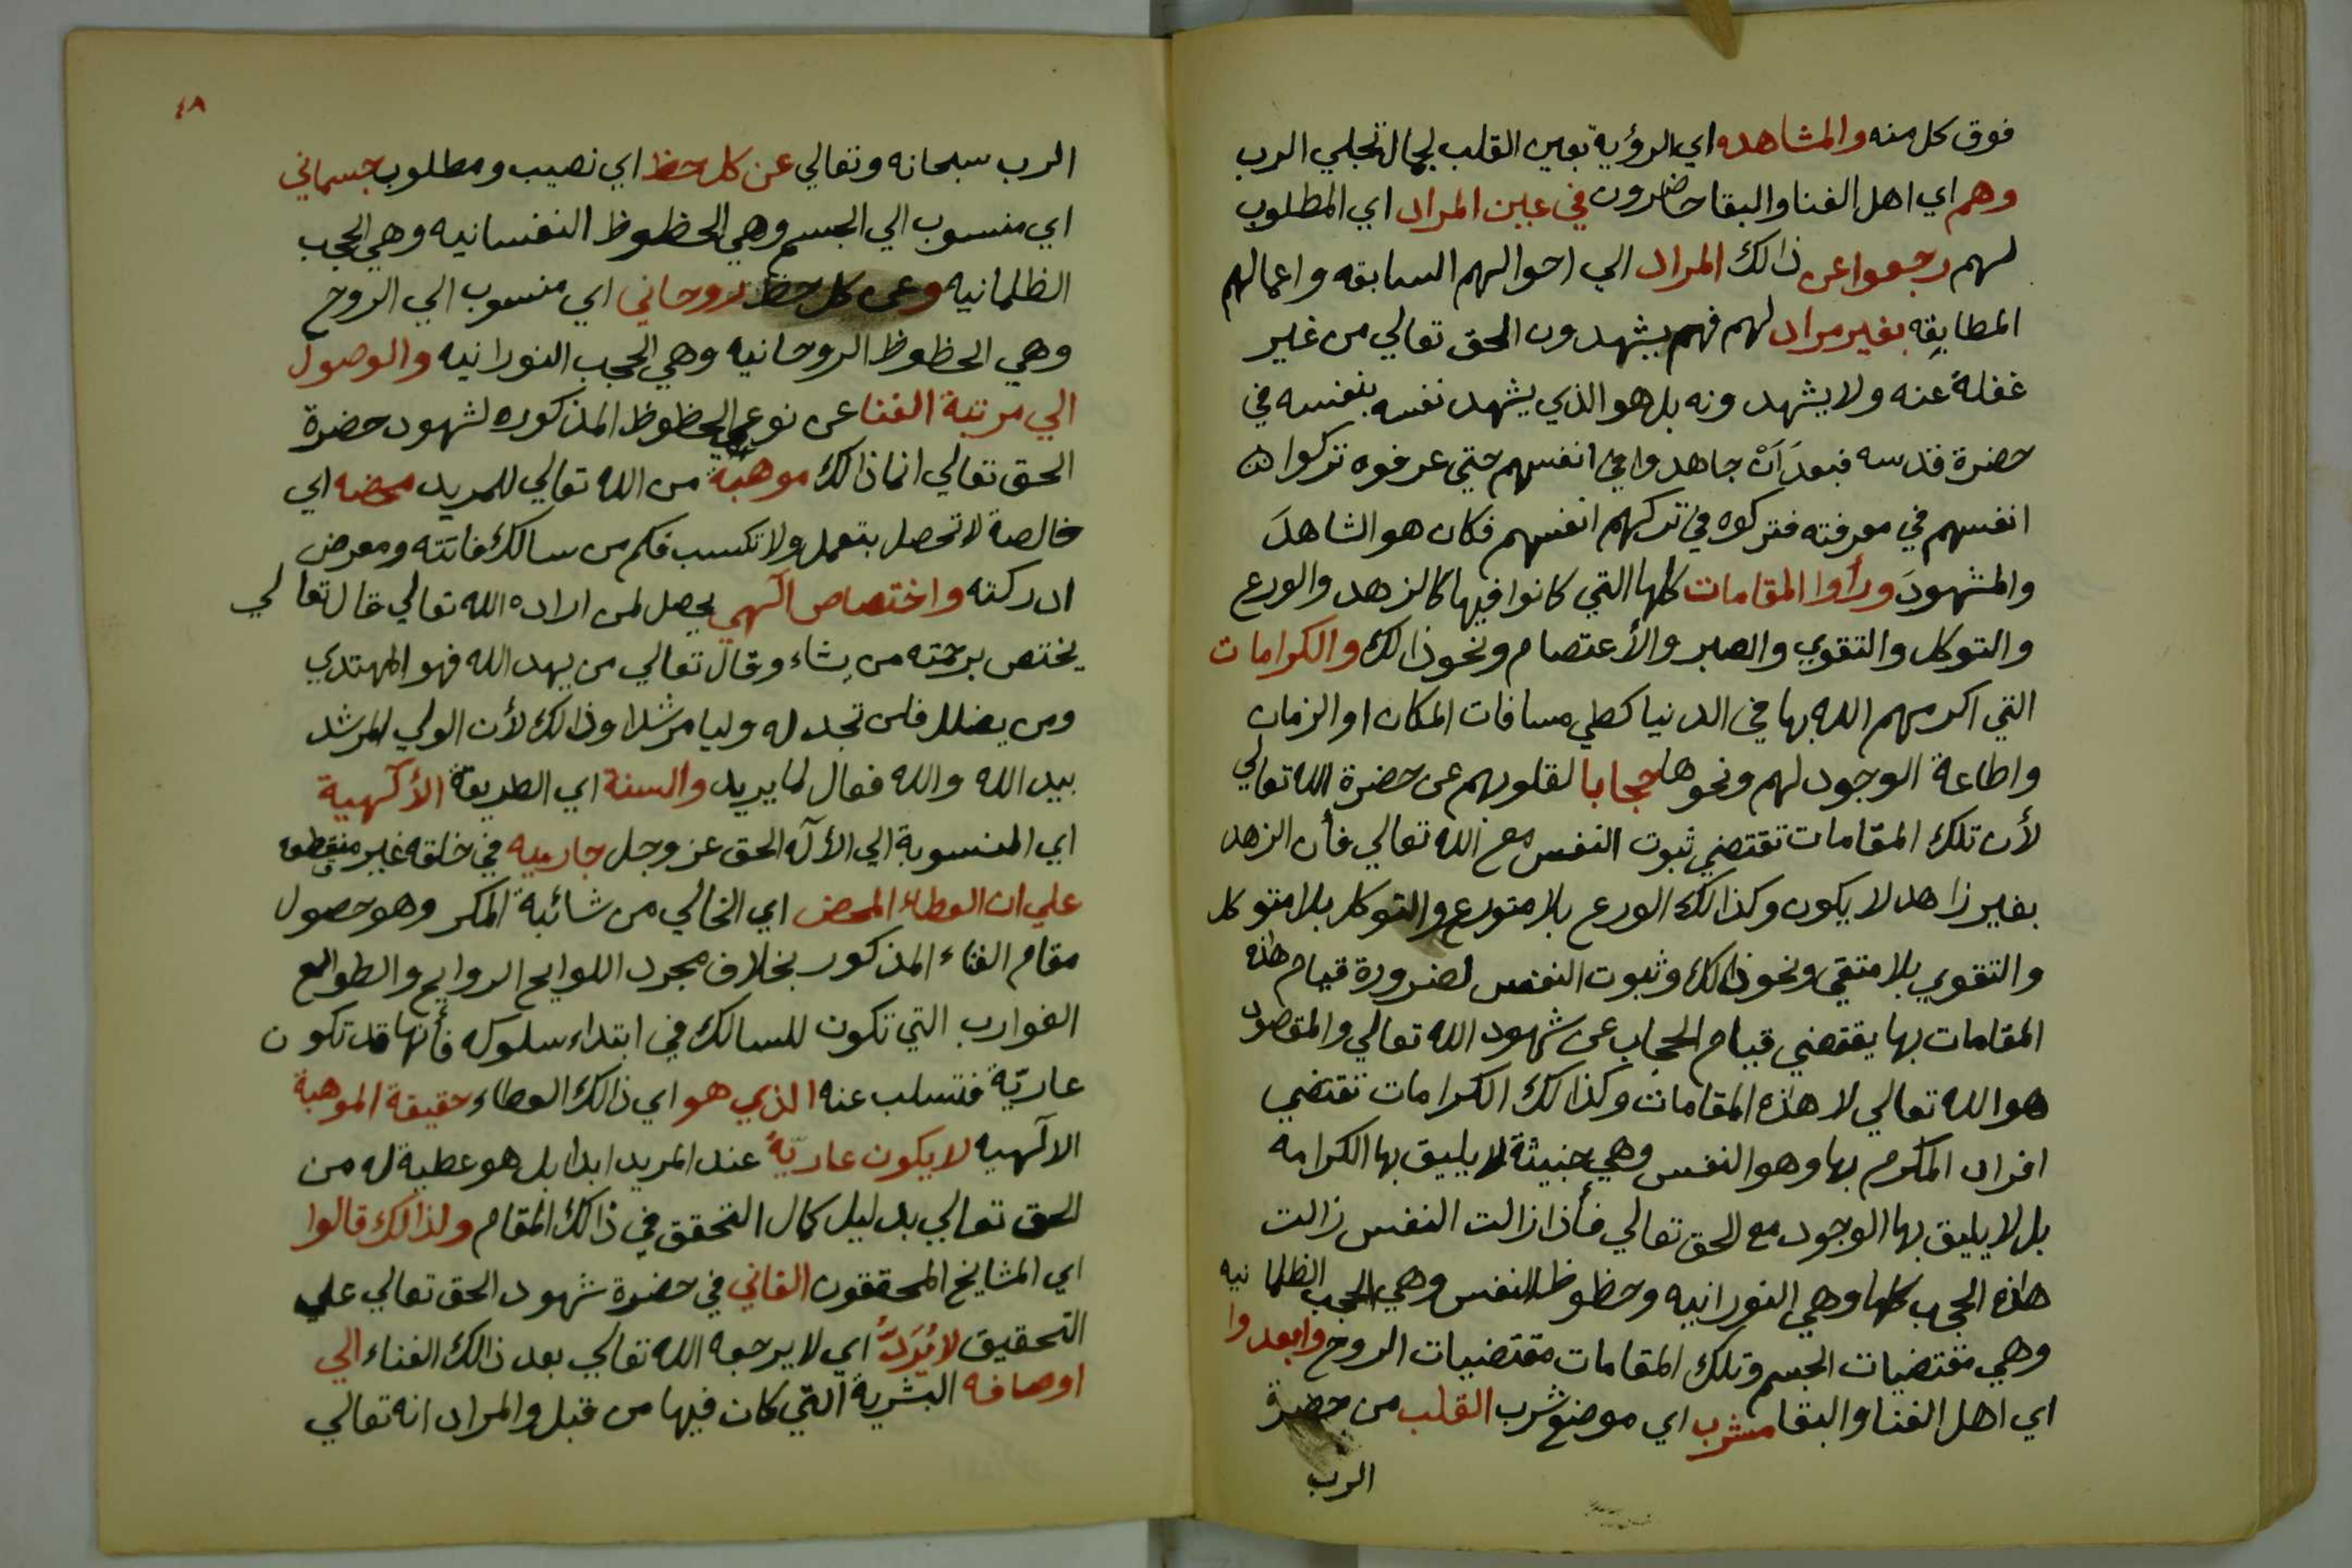 فوق كل منه والمشاهده اي الرؤية بعين القلب لجمال تجلي الرب
وهم اي اهل الفنا والبقا حاضرون في عين المراد اي المطلوب
لهم رجعوا عن ذالك المراد الي احوالهم السابقه واعمالهم
المطابقه بغير مراد لهم فهم يشهدون الحق تعالي من غير
غفلة عنه ولا يشهدونه بل هو الذي يشهد نفسه بنفسه في
حضرة قدسه فبعد ان جاهدوا في انفسهم حتي عرفوه تركوا
انفسهم في معرفته فتركوه في تركهم انفسهم فكان هو الشاهد
والمشهود ورأوا المقامات كلها التي كانوا فيها كالزهد والورع
والتوكل والتقوي والصبر والأعتصام ونحو ذالك والكرامات
التي اكرمهم الله بها في الدنيا كطي مسافات المكان او الزمان
واطاعة الوجود لهم ونحوها حجابا لقلوبهم عن حضرة الله تعالي
لأن تلك المقامات تقتضي ثبوت النفس مع الله تعالي فأن الزهد
بغير زاهد لا يكون وكذالك الورع بلا متورع والتوكل بلا متوكل
والتقوي بلا متقي ونحو ذالك وثبوت النفس لضرورة قيام هذه
المقامات بها يقتضي قيام الحجاب عن شهود الله تعالي والمقصود
هو الله تعالي لا هذه المقامات وكذالك الكرامات تقتضي
افراد المكرم بها وهو النفس وهي خبيثة لا يليق بها الكرامه
بل لا يليق بها الوجود مع الحق تعالي فأذا زالت النفس زالت
هذه الحجب كلها وهي النورانيه وحظوظ النفس وهي الحجب الظلمانيه
وهي مقتضيات الجسم وتلك المقامات مقتضيات الروح وابعدوا
اي اهل الفنا والبقا مشرب اي موضع شرب القلب من حضرة
الرب
٤٨
الرب سبحانه وتعالي عن كل حظ اي نصيب ومطلوب جسماني
اي منسوب الي الجسم وهي الحظوظ النفسانيه وهي الحجب
الظلمانيه وعن كل حظ روحاني اي منسوب الي الروح
وهي الحظوظ الروحانيه وهي الحجب النورانيه والوصول
الي مرتبة الفنا عن نوعي الحظوظ المذكوره لشهود حضرة
الحق تعالي انما ذالك موهبة من الله تعالي للمريد محضه اي
خالصة لا تحصل بتعمل ولا تكسب فكم من سالك فاتته ومعرض
ادركته واختصاص آلهي يحصل لمن اراده الله تعالي قال تعالي
يختص برحمته من يشاء وقال تعالي من يهد الله فهو المهتدي
ومن يضلل فلن تجد له وليا مرشدا وذالك لأن الولي المرشد
بيد الله والله فعال لما يريد والسنة اي الطريقة الألهية
اي المنسوبة الي الأله الحق عز وجل جاريه في خلقه غير منقطعه
علي ان العطاء المحض اي الخالي من شائبة المكر وهو حصول
مقام الفناء المذكور بخلاف مجرد اللوايح الروايح والطوالع
الغوارب التي تكون للسالك في ابتداء سلوكه فأنها قد تكون
عاريّة فتسلب عنه الذي هو اي ذالك العطاء حقيقة الموهبة
الالهيه لا يكون عاريّةً عند المريد ابدا بل هو عطية له من
الحق تعالي بدليل كمال التحقق في ذالك المقام ولذالك قالوا
اي المشايخ المحققون الفاني في حضرة شهود الحق تعالي علي
التحقيق لا يُرَدُّ اي لا يرجعه الله تعالي بعد ذالك الفناء الي
اوصافه البشرية التي كان فيها من قبل والمراد انه تعالي